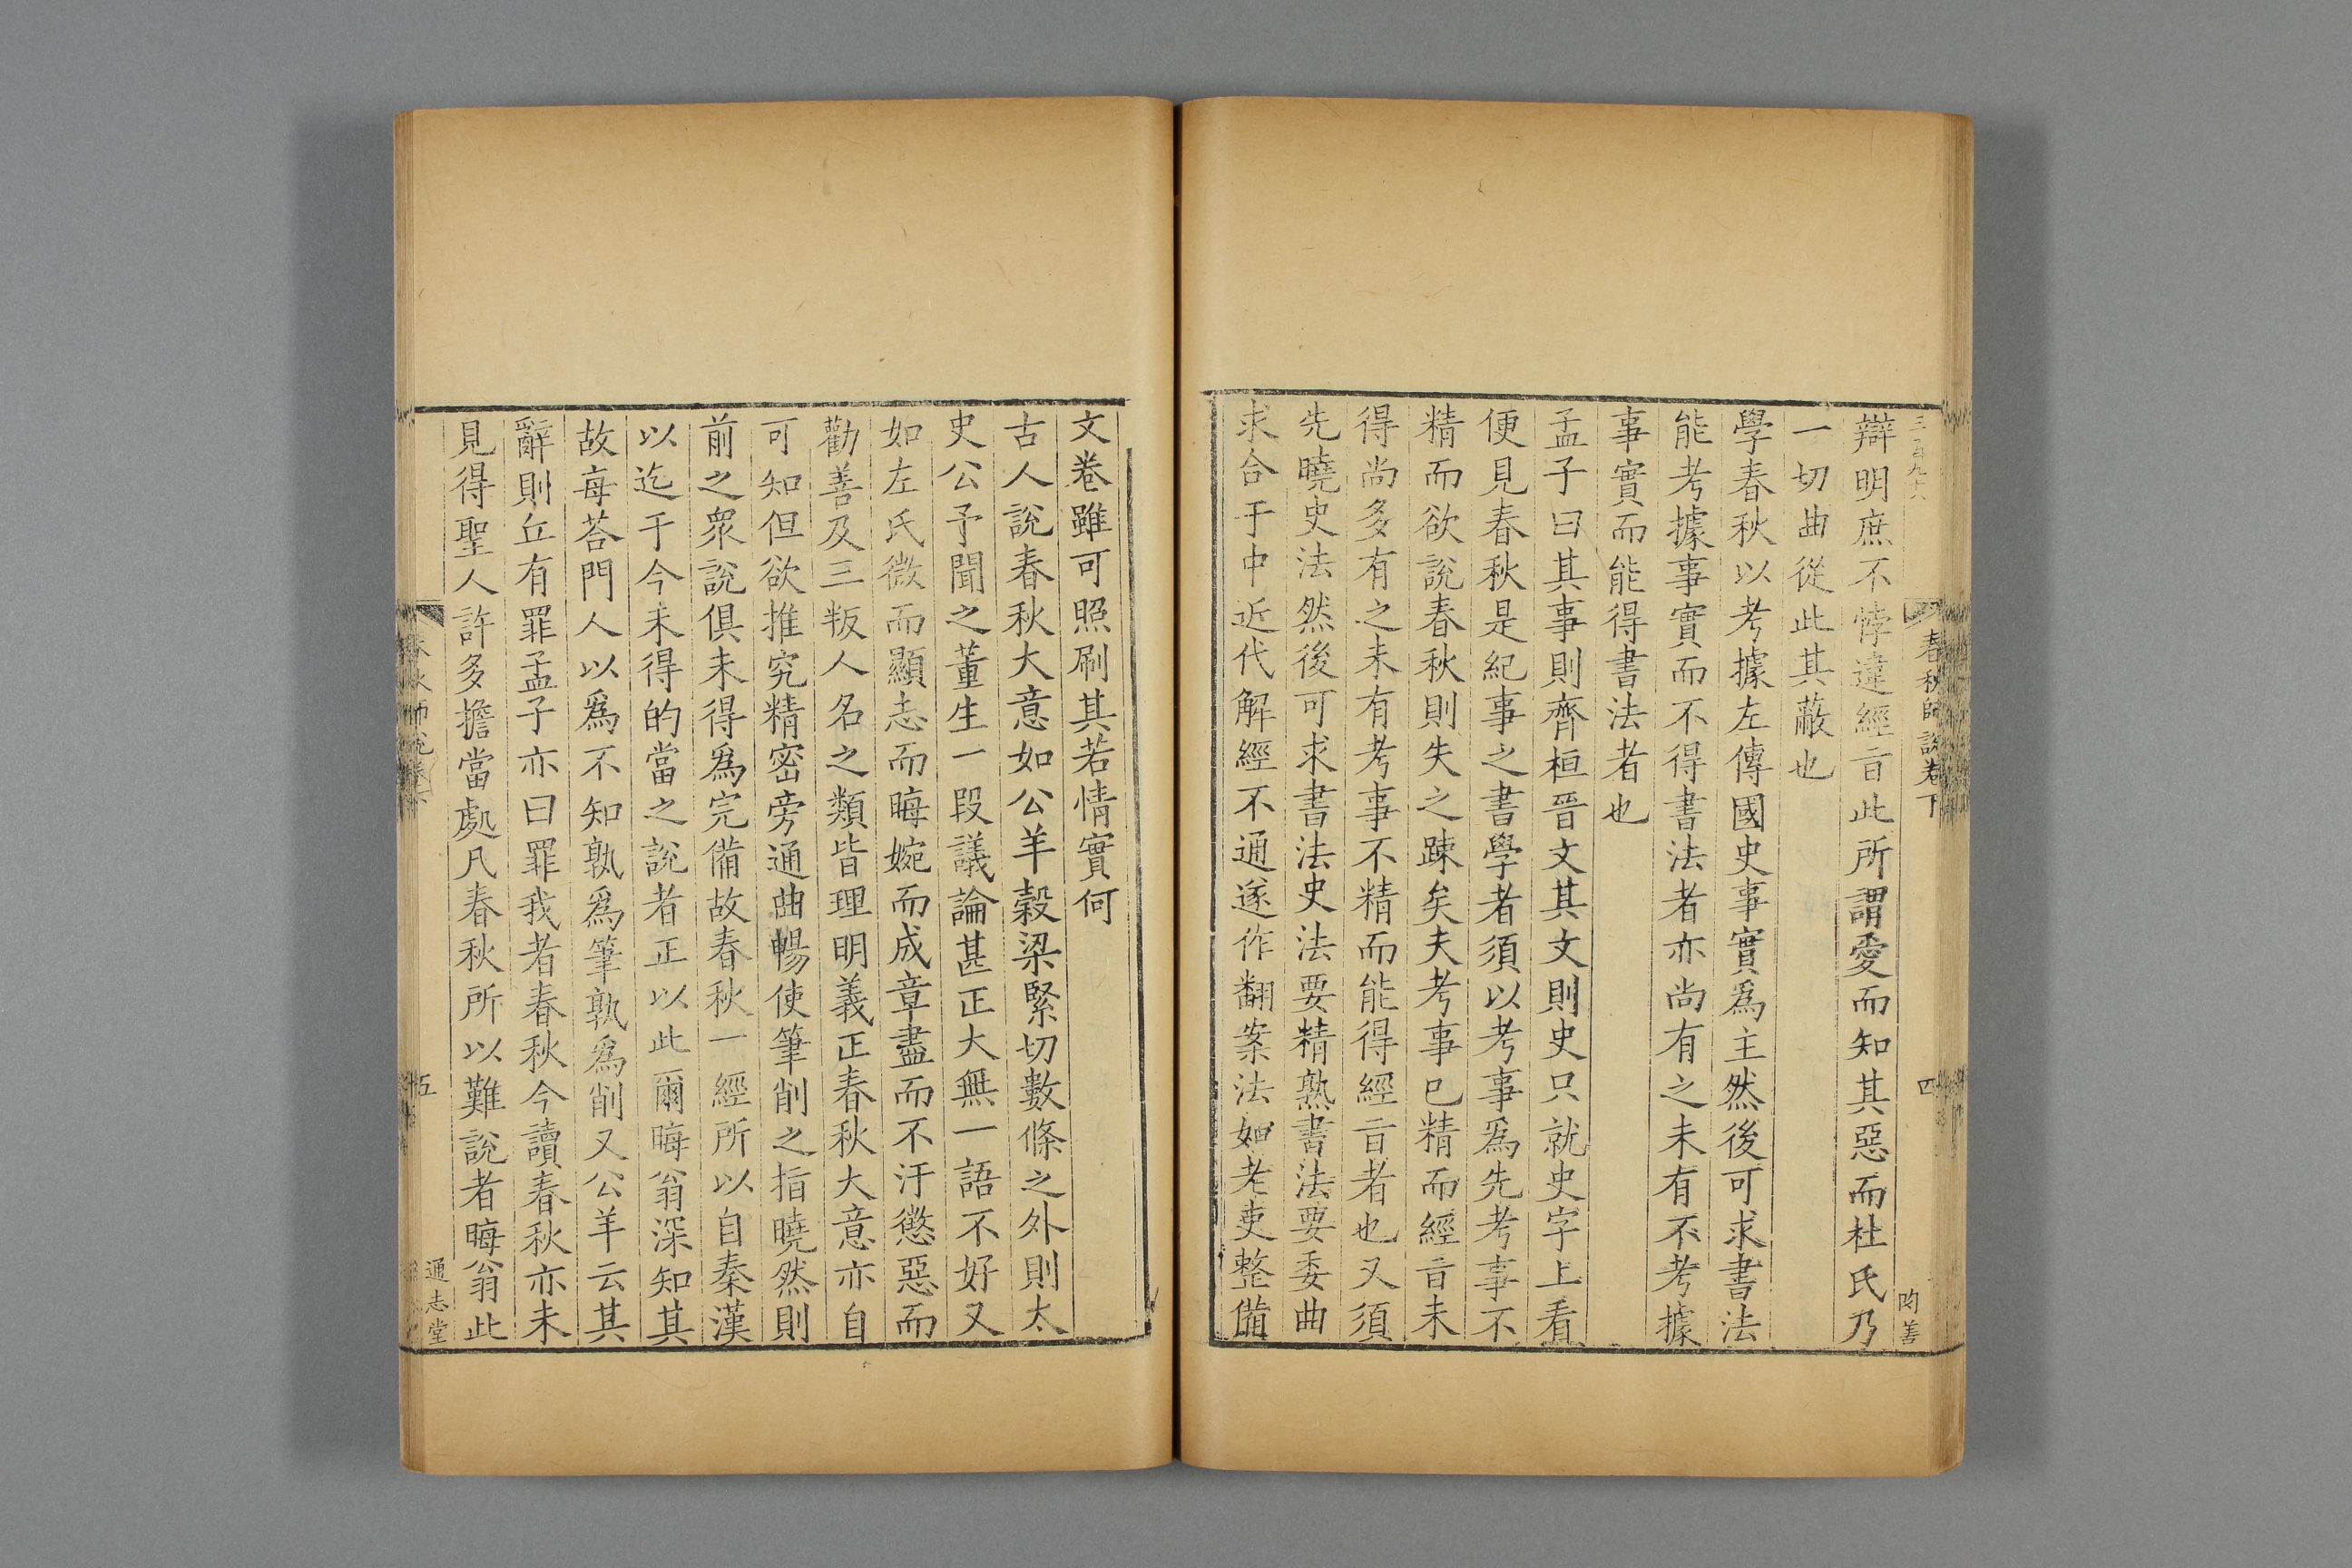 春秋師說卷下
四
辯明庶不悖違經㫖此所謂愛而知其惡而杜氏乃
一切曲從此其蔽也
學春秋以考據左傳國史事實爲主然後可求書法
能考據事實而不得書法者亦尚有之未有不考據
事實而能得書法者也
孟子曰其事則齊桓晉文其文則史只就史字上看
便見春秋是紀事之書學者須以考事爲先考事不
精而欲說春秋則失之踈矣夫考事已精而經㫖未
得尚多有之未有考事不精而能得經㫖者也又須
先曉史法然後可求書法史法要精熟書法要委曲
求合于中近代解經不通遂作翻案法如老吏整備
文卷雖可照刷其若情實何
古人說春秋大意如公羊榖梁緊切數條之外則太
史公予聞之董生一段議論甚正大無一語不好又
如左氏微而顯志而晦婉而成章盡而不汙懲惡而
勸善及三叛人名之類皆理明義正春秋大意亦自
可知但欲推究精密旁通曲暢使筆削之指曉然則
前之衆說俱未得爲完備故春秋一經所以自秦漢
以迄于今未得的當之說者正以此爾晦翁深知其
故每荅門人以爲不知孰爲筆孰爲削又公羊云其
辭則丘有罪孟子亦曰罪我者春秋今讀春秋亦未
見得聖人許多擔當處凡春秋所以難說者晦翁此
五
通志堂